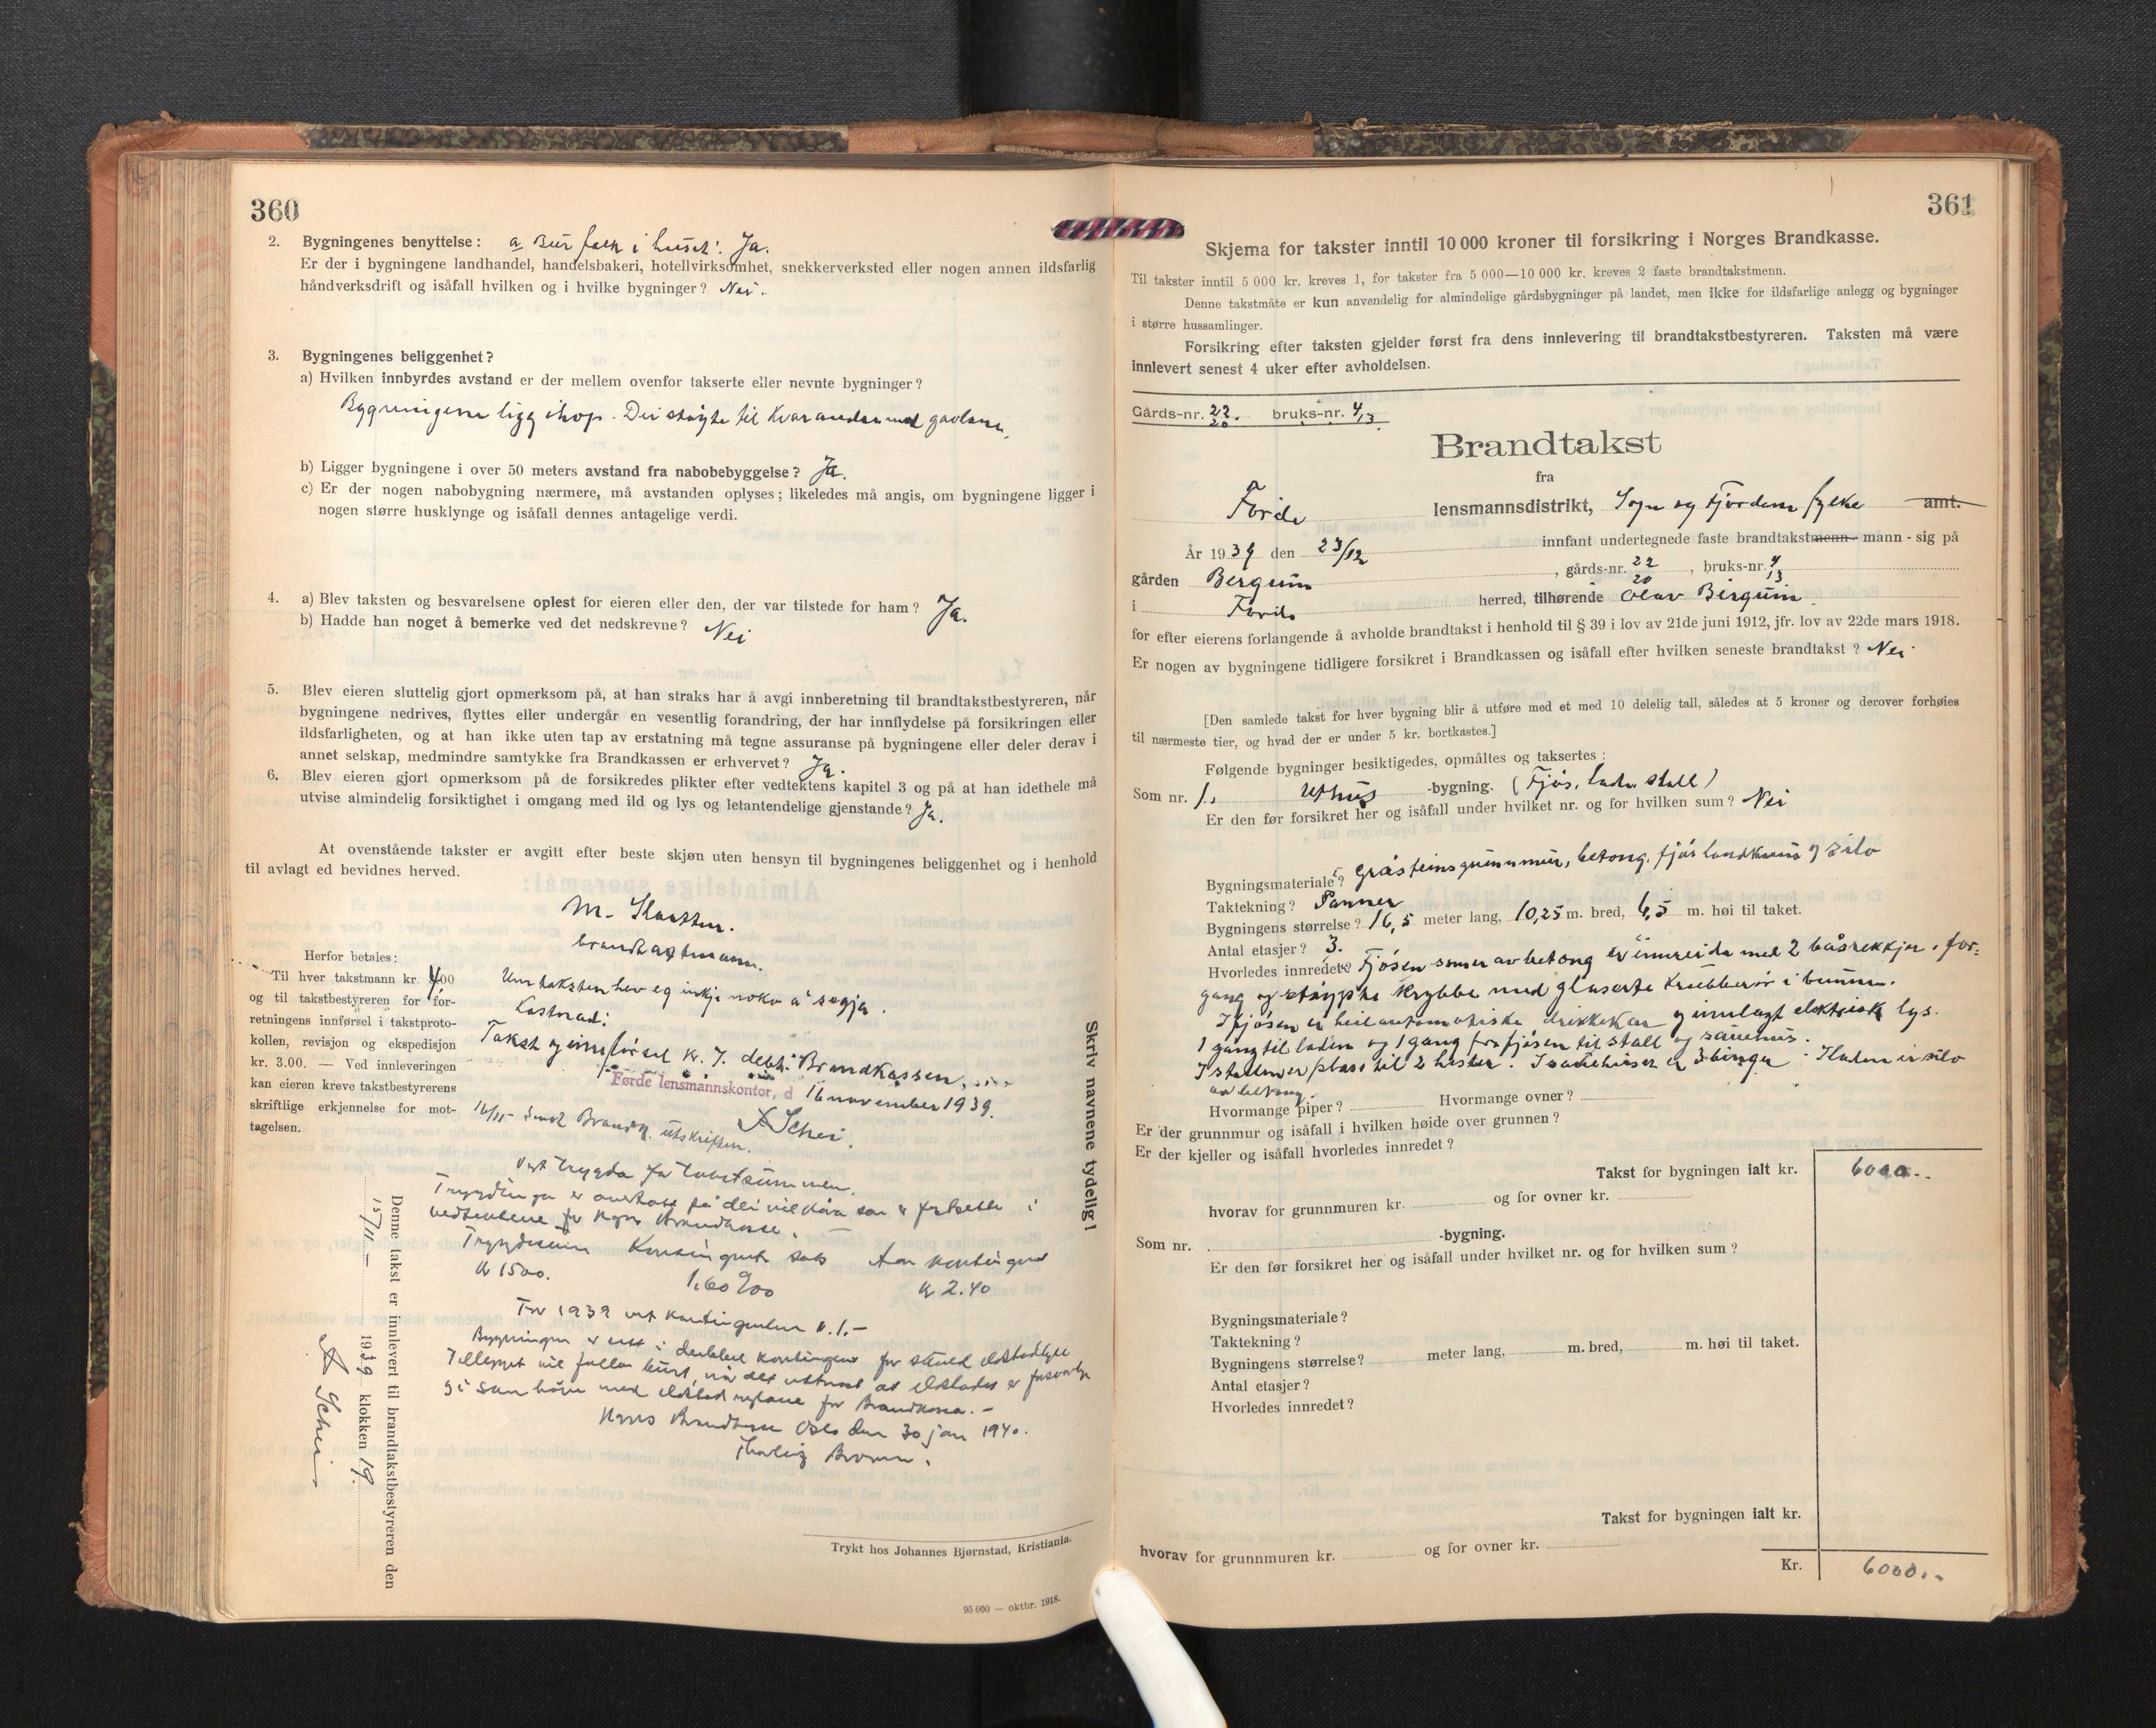 360
2. Bygningenes benyttelse: a Bur folk i huset? Ja.
Er der i bygningene landhandel, handelsbakeri, hotellvirksomhet, snekkerverksted eller nogen annen ildsfarlig
håndverksdrift og isåfall hvilken og i hvilke bygninger? Nei.
3. Bygningenes beliggenhet?
a) Hvilken innbyrdes avstand er der mellem ovenfor takserte eller nevnte bygninger?
Bygningene ligg ihop. Dei støyte til kvarandre med gavlane.
b) Ligger bygningene i over 50 meters avstand fra nabobebyggelse? Ja.
c) Er der nogen nabobygning nærmere, må avstanden oplyses; likeledes må angis, om bygningene ligger i
nogen større husklynge og isåfall dennes antagelige verdi.
4. a) Blev taksten og besvarelsene oplest for eieren eller den, der var tilstede for ham? Ja.
b) Hadde han noget å bemerke ved det nedskrevne? Nei
5. Blev eieren sluttelig gjort opmerksom på, at han straks har å avgi innberetning til brandtakstbestyreren, når
bygningene nedrives, flyttes eller undergår en vesentlig forandring, der har innflydelse på forsikringen eller
ildsfarligheten, og at han ikke uten tap av erstatning må tegne assuranse på bygningene eller deler derav i
annet selskap, medmindre samtykke fra Brandkassen er erhvervet? Ja.
6. Blev eieren gjort opmerksom på de forsikredes plikter efter vedtektens kapitel 3 og på at han idethele må
utvise almindelig forsiktighet i omgang med ild og lys og letantendelige gjenstande? Ja.
At ovenstående takster er avgitt efter beste skjøn uten hensyn til bygningenes beliggenhet og i henhold
til avlagt ed bevidnes herved.
brandtakstmann.
Herfor betales:
Til hver takstmann kr. 4.00
og til takstbestyreren for for-
retningens innførsel i takstproto-
kollen, revisjon og ekspedisjon
kr. 3.00. — Ved innleveringen
kan eieren kreve takstbestyrerens
skriftlige erkjennelse for mot-
tagelsen.
Um taksten hev eg inkje noko å segja.
Kostnad:
Takst og innførsel kr. 7. debt. Brandkassen.
Førde lensmannskontor, d 16 november 1939.
A Schei.
16/11 - Sendt Brandk. utskriften.
Vert trygda for takstsummen.
Tryggdinga er overteke på dei vilkåra som er fastsette i
vedtektene for Noregs Brandkasse.
Tryggdesum Kontingent sats Aar kontingent
kr 1500. 1.60 ‰ kr 2.40
For 1939 vert kontingenten kr. 1.-
Noregs Brandkasse Oslo den 30 jan 1940.
Denne takst er innlevert til brandtakstbestyreren den
15/11 - 1939 klokken 19.
A Schei
Skriv navnene tydelig!
Trykt hos Johannes Bjørnstad, Kristiania.
95 000 — oktbr. 1918.
361
Skjema for takster inntil 10 000 kroner til forsikring i Norges Brandkasse.
Til takster inntil 5 000 kr. kreves 1, for takster fra 5 000—10 000 kr. kreves 2 faste brandtakstmenn.
Denne takstmåte er kun anvendelig for almindelige gårdsbygninger på landet, men ikke for ildsfarlige anlegg og bygninger
i større hussamlinger.
Forsikring efter taksten gjelder først fra dens innlevering til brandtakstbestyreren. Taksten må være
innlevert senest 4 uker efter avholdelsen.
Gårds-nr. 22. 20 bruks-nr. 4, 13
Brandtakst
fra
Førde lensmannsdistrikt, Sogn og Fjordane fylke amt.
År 1939 den 23/12 innfant undertegnede faste brandtakstmenn mann - sig på
gården Bergum, gårds-nr. 22 20, bruks-nr. 4 13
i Førde herred, tilhørende Olav Bergum
for efter eierens forlangende å avholde brandtakst i henhold til § 39 i lov av 21de juni 1912, jfr. lov av 22de mars 1918.
Er nogen av bygningene tidligere forsikret i Brandkassen og isåfall efter hvilken seneste brandtakst? Nei
[Den samlede takst for hver bygning blir å utføre med et med 10 delelig tall, således at 5 kroner og derover forhøies
til nærmeste tier, og hvad der er under 5 kr. bortkastes.]
Følgende bygninger besiktigedes, opmåltes og taksertes:
Som nr. 1. Uthus -bygning. (Fjøs, lade, stall)
Er den før forsikret her og isåfall under hvilket nr. og for hvilken sum? Nei
Bygningsmateriale? Gråsteinsgrunnmur, betong, fjøs landkum og silo
Taktekning? Panner
Bygningens størrelse? 16,5 meter lang, 10,25 m. bred, 6,5 m. høi til taket.
Antal etasjer? 3.
Hvorledes innredet? Fjøsen som er av betong er innreida med 2 båsrekkjer, for-
gang og støypte krybbe med glaserte krubberør i bunnen.
I fjøsen er heilautomatiske drikkekar og innlagt elektrisk lys.
1 gang til laden og 1 gang fra fjøsen til stall og sauehus.
I stallen er plass til 2 hester. I sauehuset er 3 binger. I laden er silo
av betong.
Hvormange piper? Hvormange ovner?
Er der grunnmur og isåfall i hvilken høide over grunnen?
Er der kjeller og isåfall hvorledes innredet?
Takst for bygningen ialt kr. 6000..
hvorav for grunnmuren kr. og for ovner kr.
Som nr. -bygning.
Er den før forsikret her og isåfall under hvilket nr. og for hvilken sum?
Bygningsmateriale?
Taktekning?
Bygningens størrelse? meter lang, m. bred, m. høi til taket.
Antal etasjer?
Hvorledes innredet?
Takst for bygningen ialt kr.
hvorav for grunnmuren kr. og for ovner kr.
Kr. 6000..